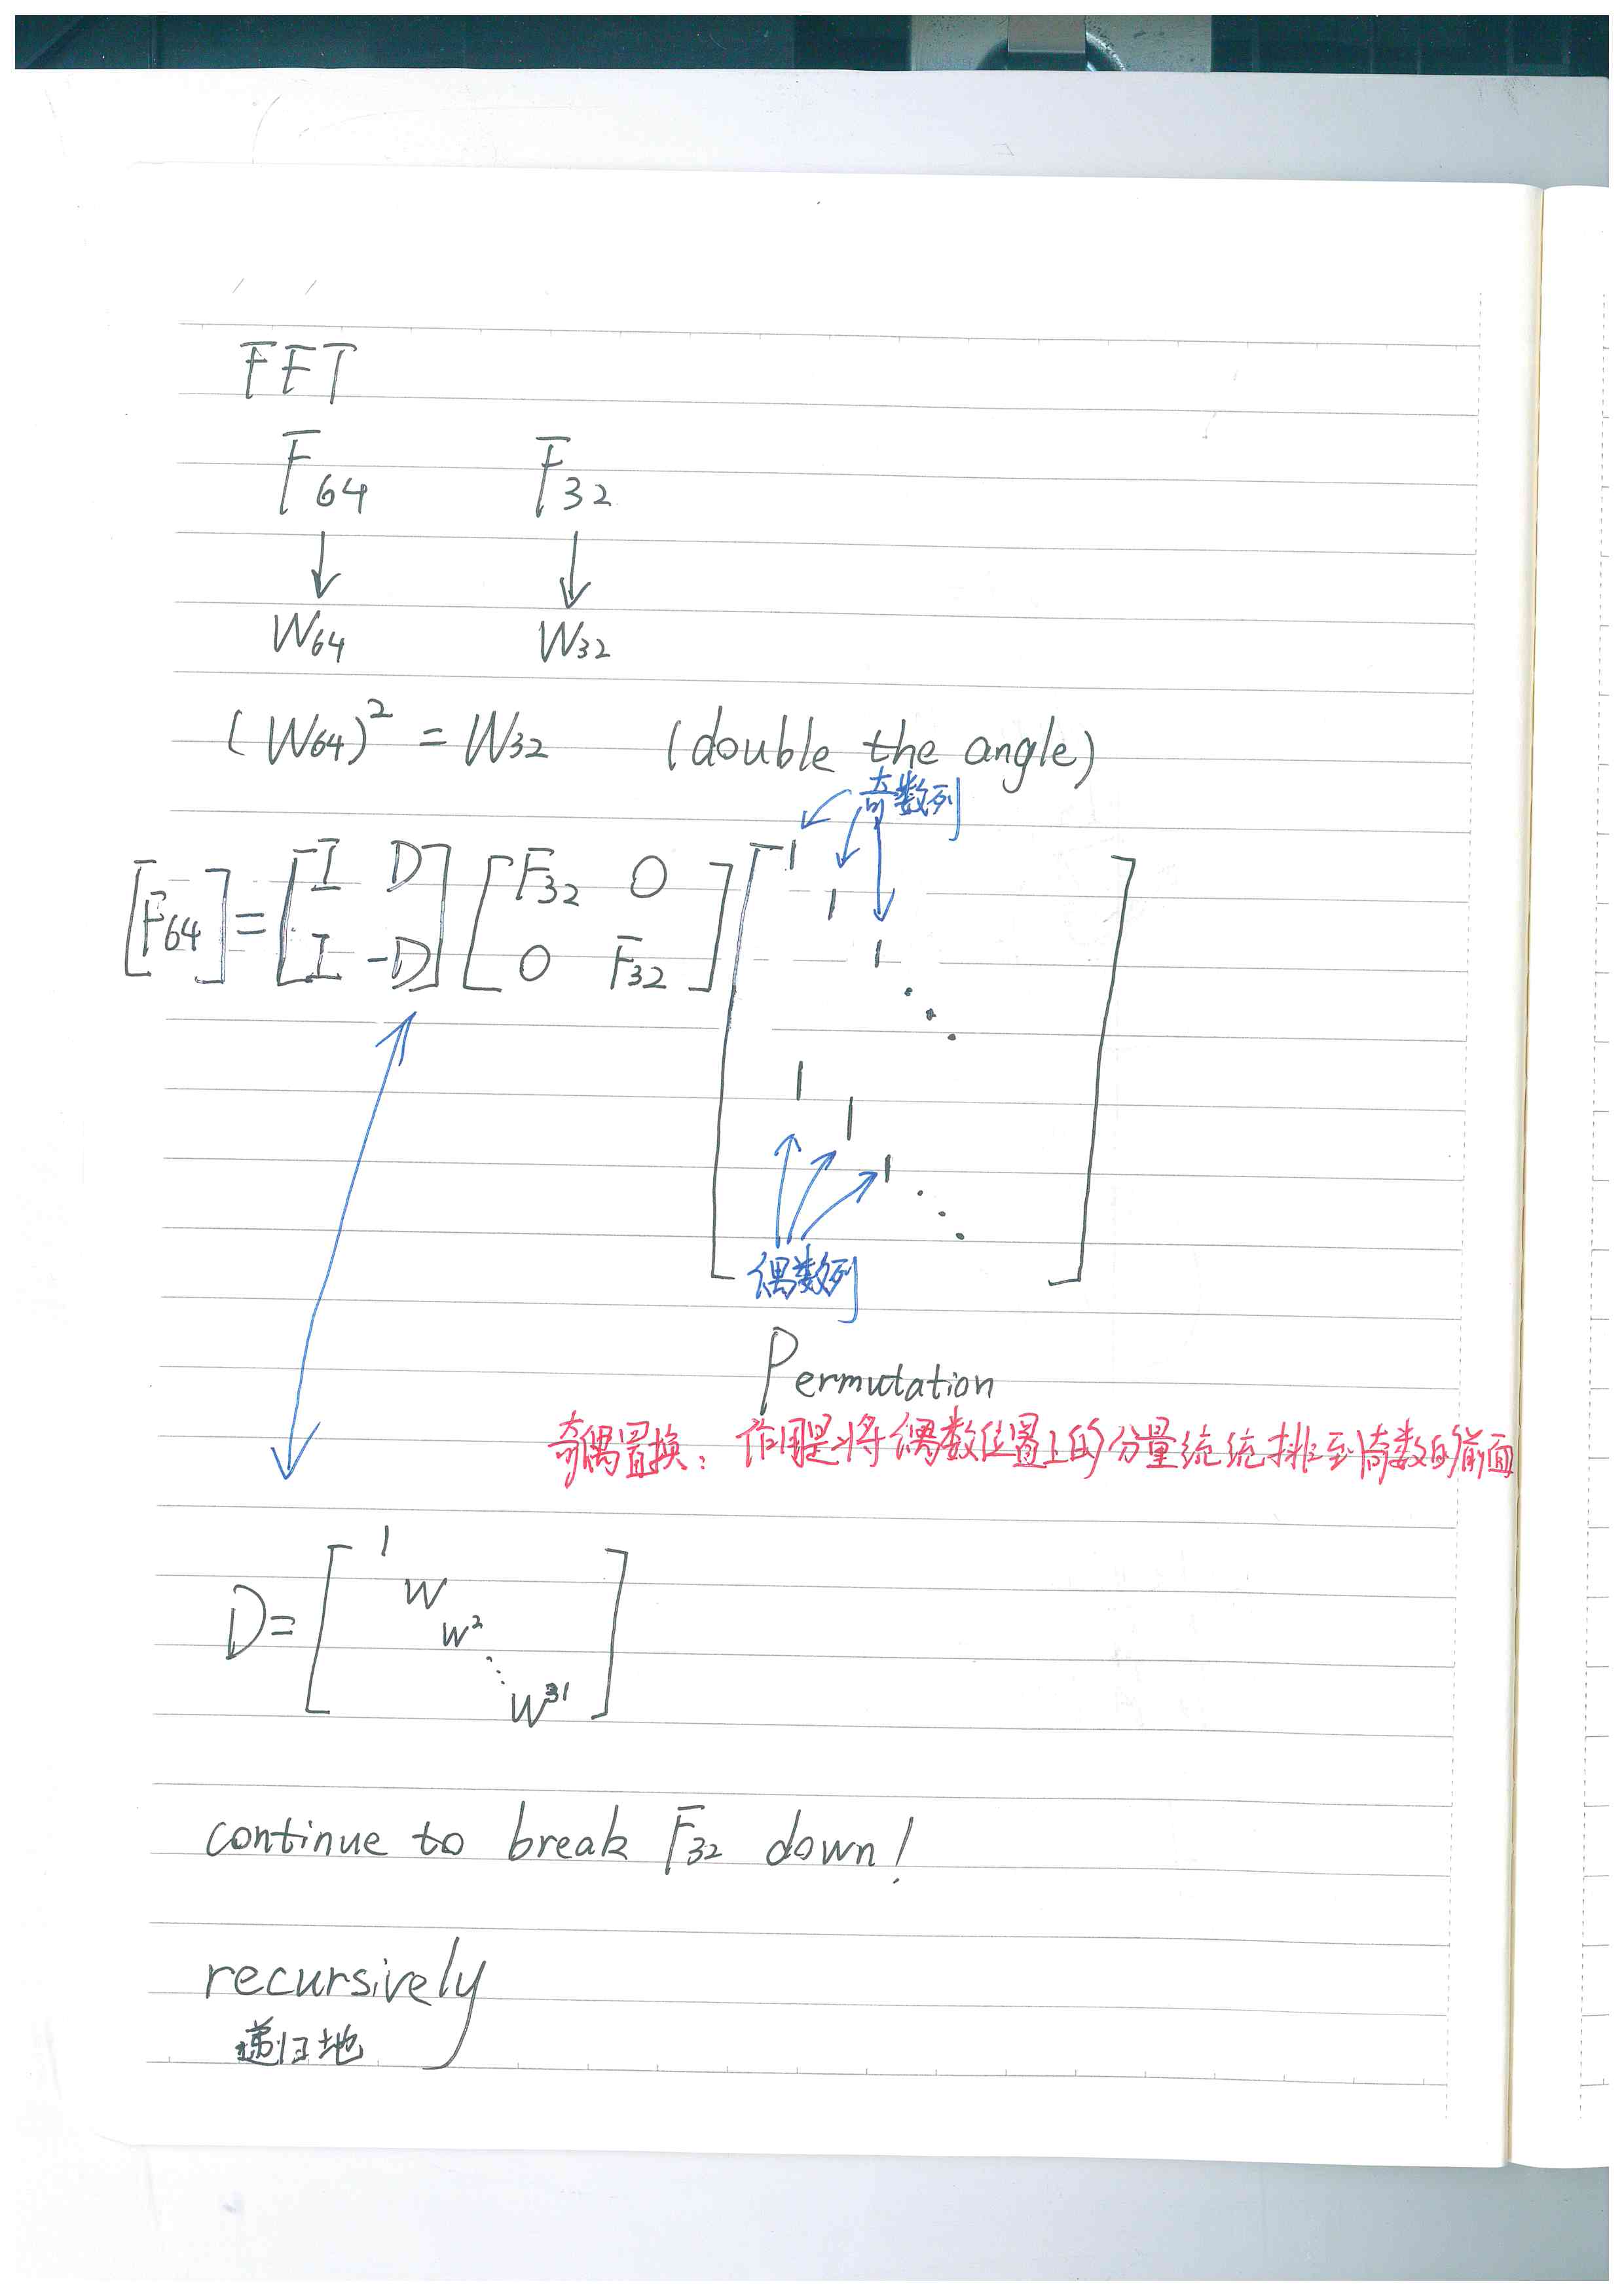 FFT
F₆₄ F₃₂
↓ ↓
W₆₄ W₃₂
(W₆₄)² = W₃₂ (double the angle)
奇数列
[F₆₄] = [I D; I -D] [F₃₂ 0; 0 F₃₂] [1 1 1 ⋱; 1 1 1 ⋱]
偶数列
Permutation
奇偶置换：作用是将偶数位置上的分量统统排到奇数的前面
D = [1 W W² ⋱ W³¹]
continue to break F₃₂ down!
recursively
递归地